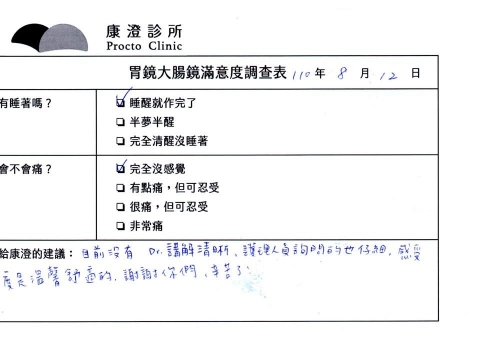 康澄診所
Procto Clinic
胃鏡大腸鏡滿意度調查表 110 年 8 月 12 日
有睡著嗎？
睡醒就作完了
半夢半醒
完全清醒沒睡著
會不會痛？
完全沒感覺
有點痛，但可忍受
很痛，但可忍受
非常痛
給康澄的建議：目前沒有 Dr.講解清晰，護理人員詢問的也仔細，感受
度是溫馨舒適的，謝謝你們，辛苦了！